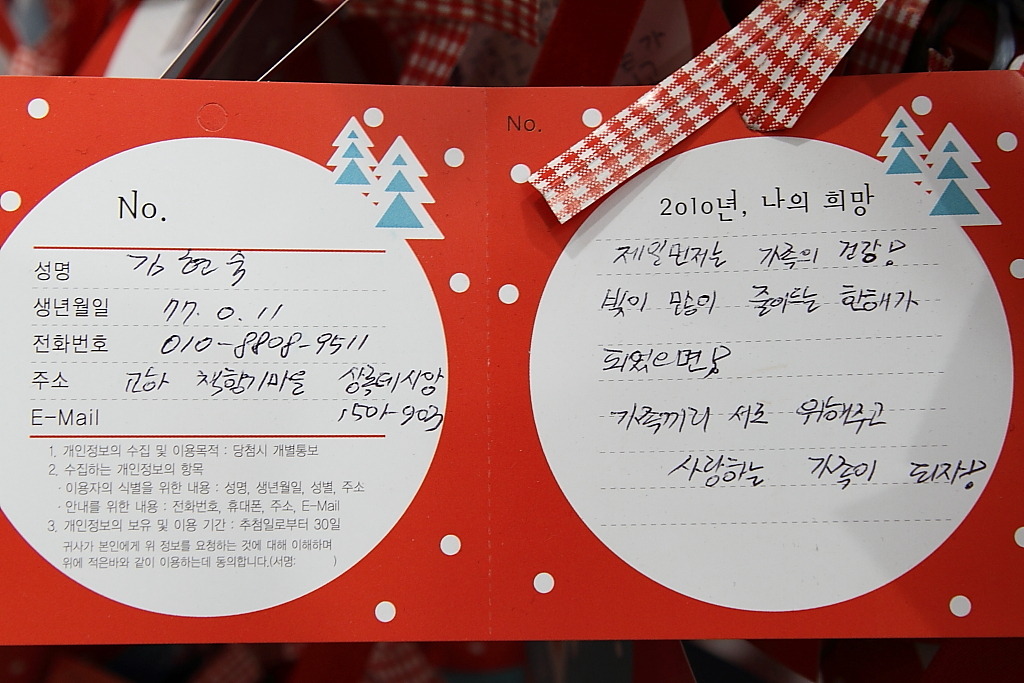 No.
성명 김현숙
생년월일 77. 0. 11
전화번호 010-8808-9511
주소 책향기마을
1501-903
E-Mail
1. 개인정보의 수집 및 이용목적 : 당첨시 개별통보
2. 수집하는 개인정보의 항목
· 이용자의 식별을 위한 내용 : 성명, 생년월일, 성별, 주소
· 안내를 위한 내용 : 전화번호, 휴대폰, 주소, E-Mail
3. 개인정보의 보유 및 이용 기간 : 추첨일로부터 30일
귀사가 본인에게 위 정보를 요청하는 것에 대해 이해하며
위에 적은바와 같이 이용하는데 동의합니다.(서명: )
No.
2010년, 나의 희망
제일먼저는 가족의 건강!
빚이 많이 줄어드는 한해가
되었으면!
가족끼리 서로 위해주고
사랑하는 가족이 되자!